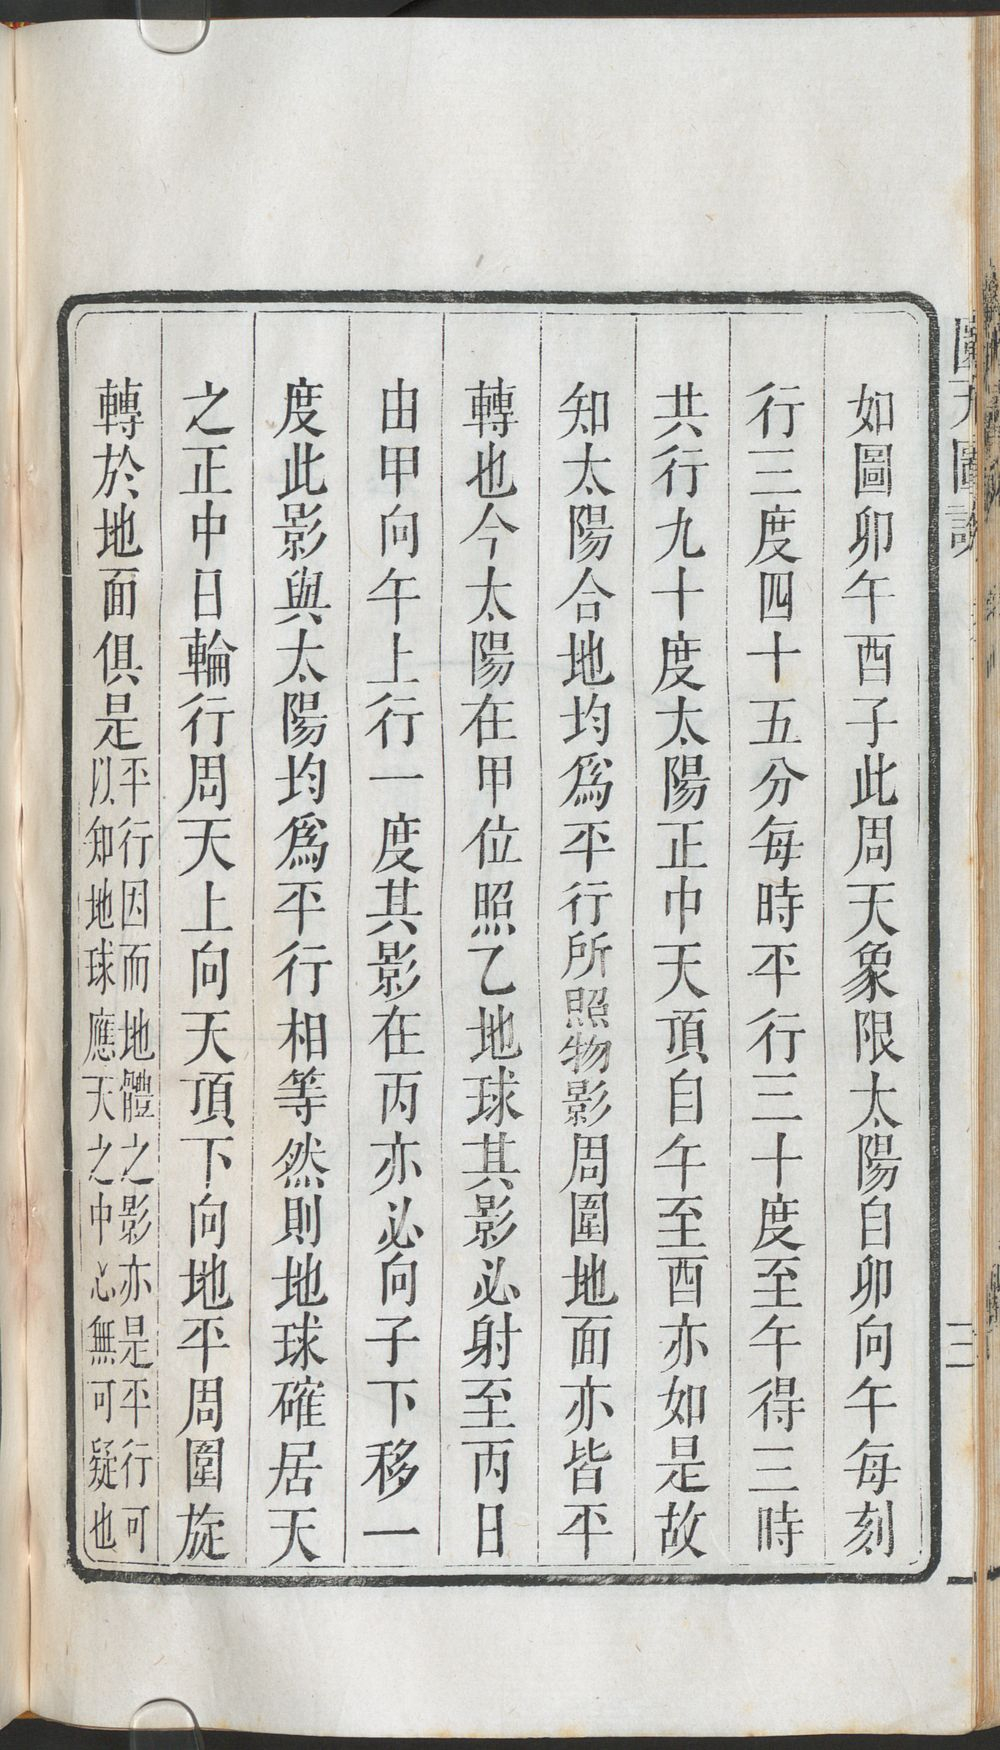 如圖卯午酉子此周天象限太陽自卯向午每刻
行三度四十五分每時平行三十度至午得三時
共行九十度太陽正中天頂自午至酉亦如是故
知太陽合地均爲平行所照物影周圍地面亦皆平
轉也今太陽在甲位照乙地球其影必射至丙日
由甲向午上行一度其影在丙亦必向子下移一
度此影與太陽均爲平行相等然則地球確居天
之正中日輪行周天上向天頂下向地平周圍旋
轉於地面俱是
平行因而地體之影亦是平行可
以知地球應天之中心無可疑也
圜天圖說
三